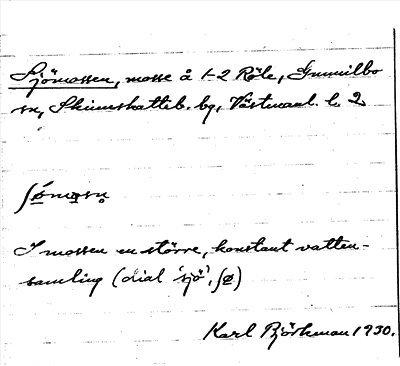 Sjömossen, mosse å 1-2 Röle, Gunnilbo
sn, Skinnskatteb. bg, Västmanl. l. 2
ʃǿmɔsn̥
I mossen en större, konstant vatten-
samling (dial 'sjö', ʃø)
Karl Björkman 1930.